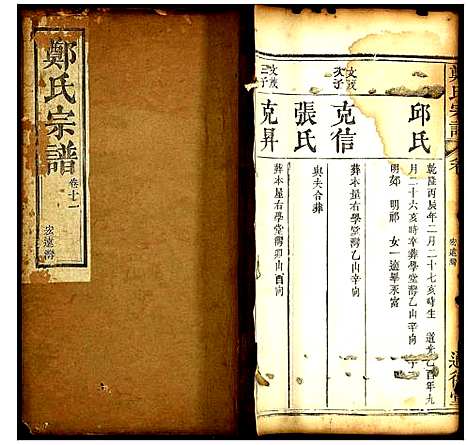 鄭氏宗譜
卷十一
宏遠灣
鄭氏宗譜
卷
宏遠灣
邱氏
乾隆丙辰年二月二十七亥時生 道光乙酉年九
月二十六亥時卒葬學堂灣乙山辛向
明郊 明祁 女一適畢
文茂
次子
克信
葬本屋右學堂灣乙山辛向
張氏
與夫合葬
文茂
三子
克昇
葬本屋右學堂灣卯山酉向